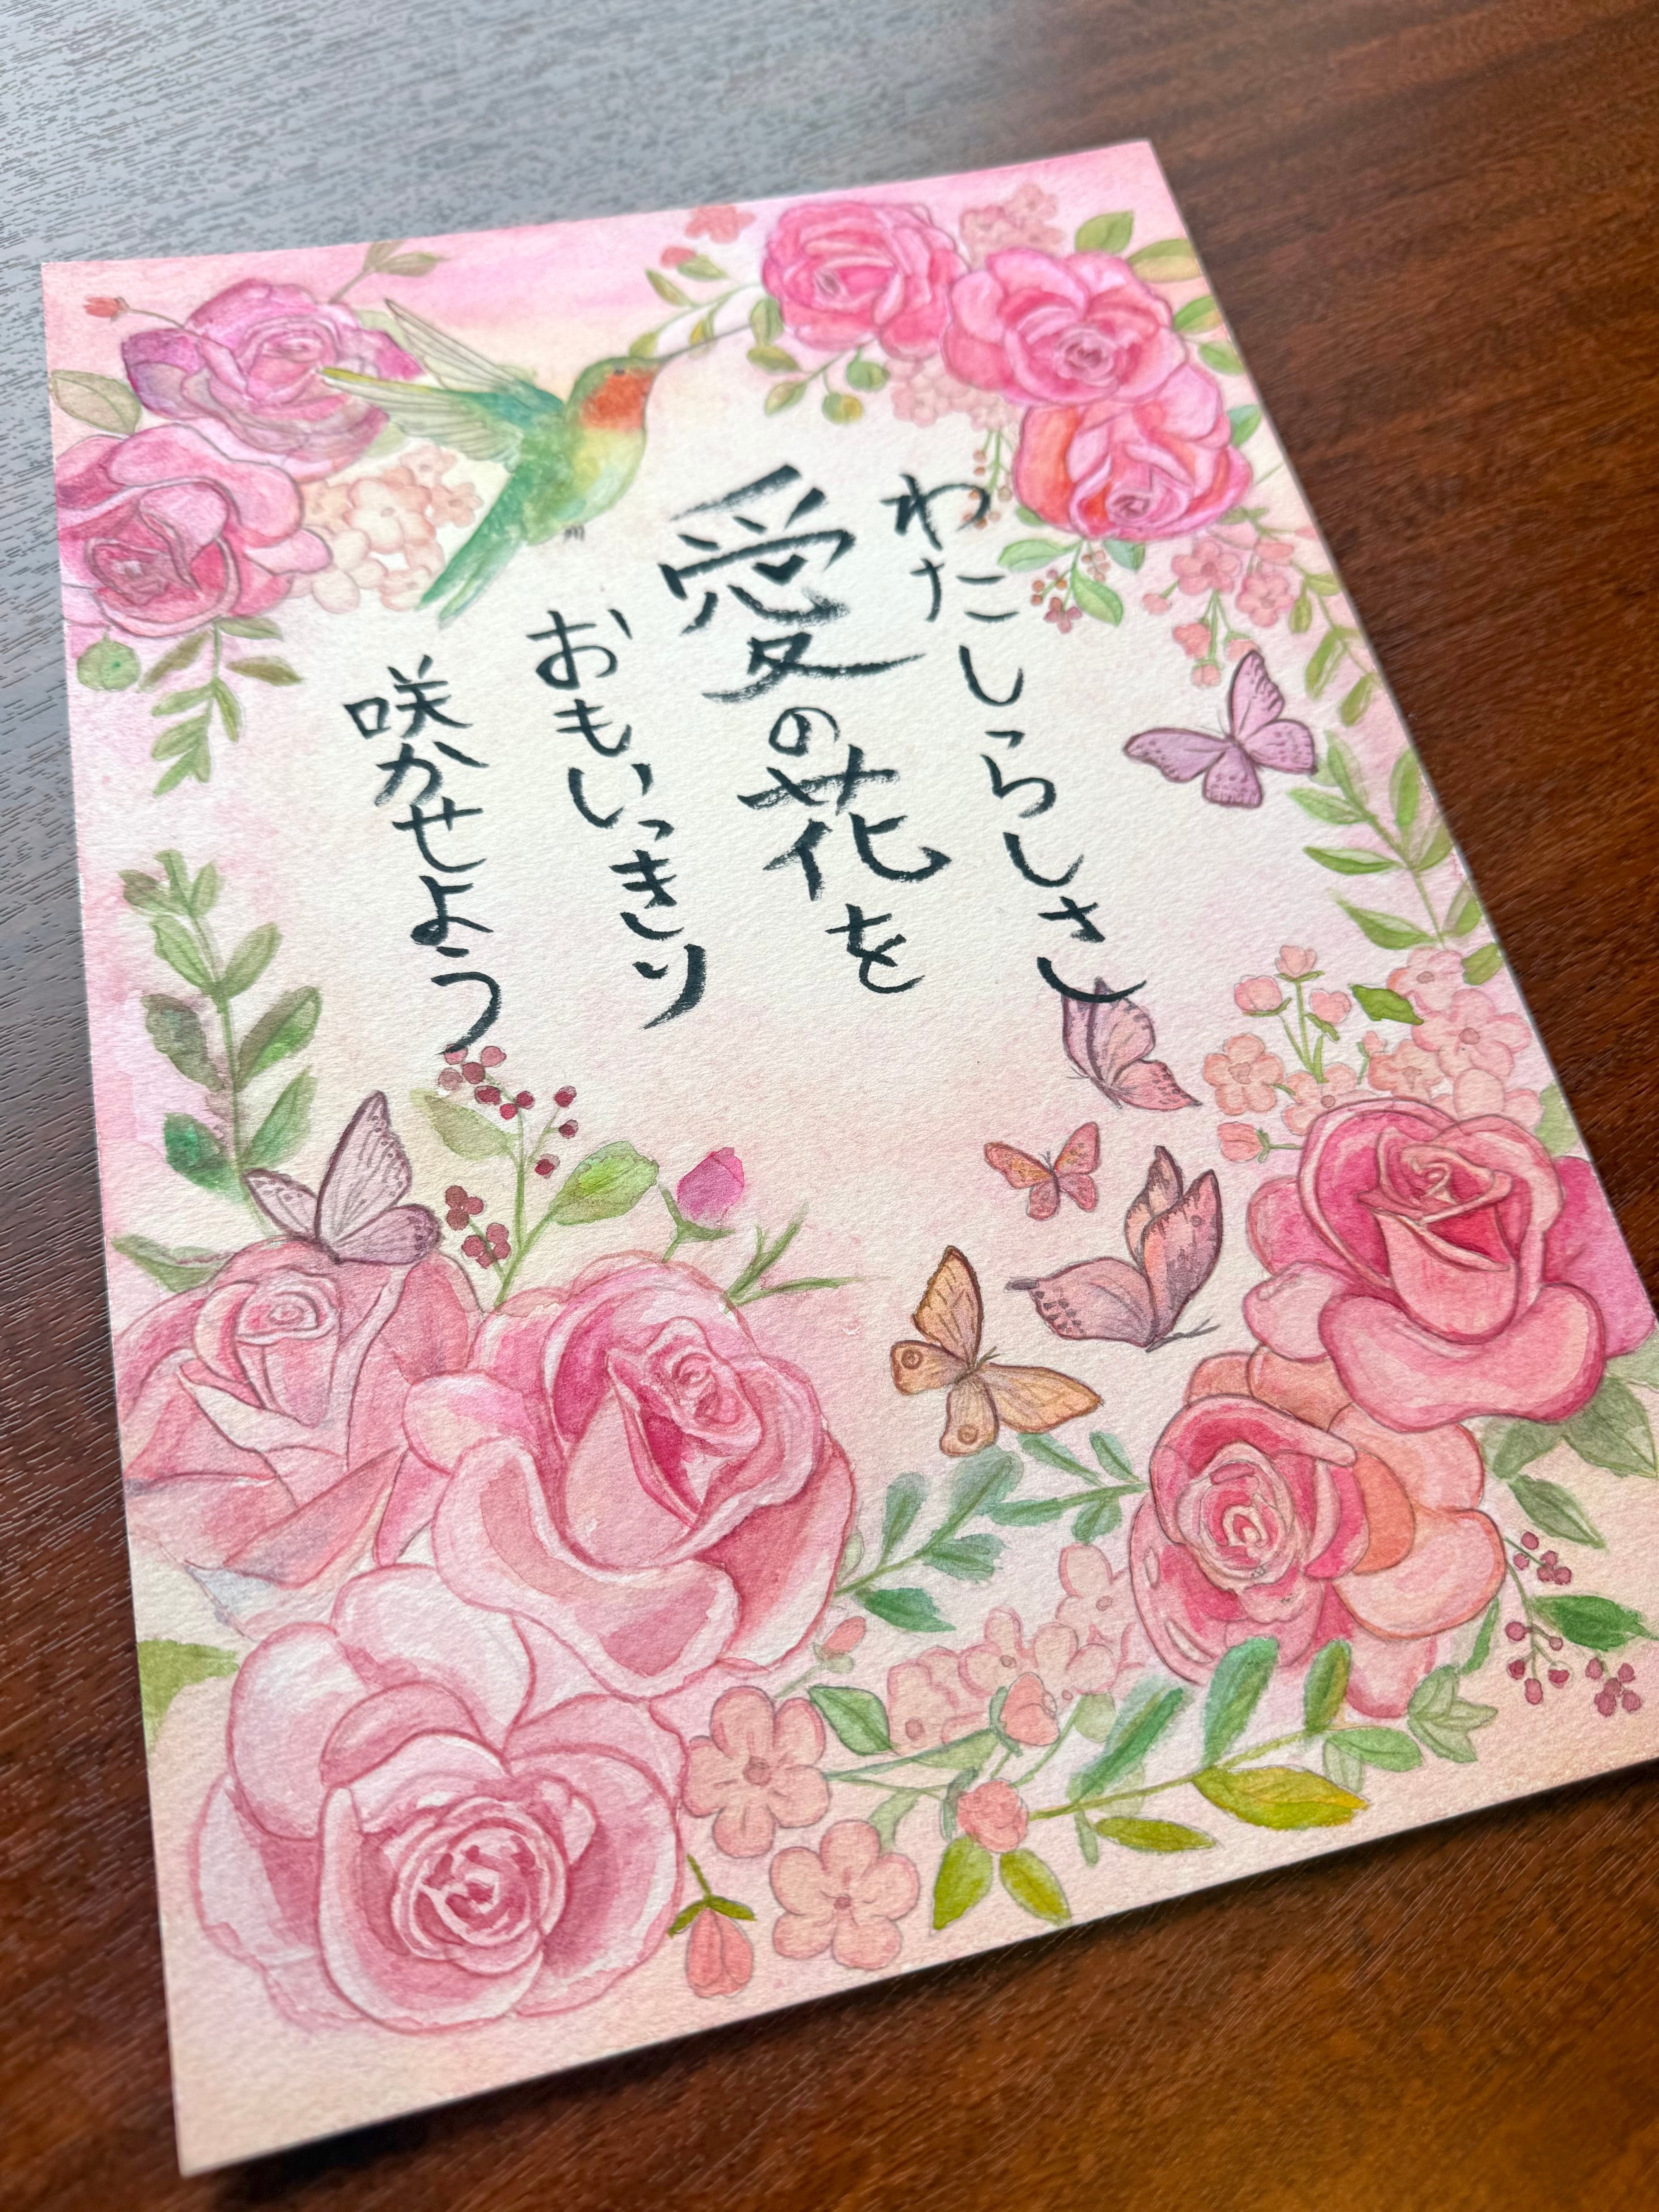 わたしらしさと
愛の花を
おもいっきり
咲かせよう